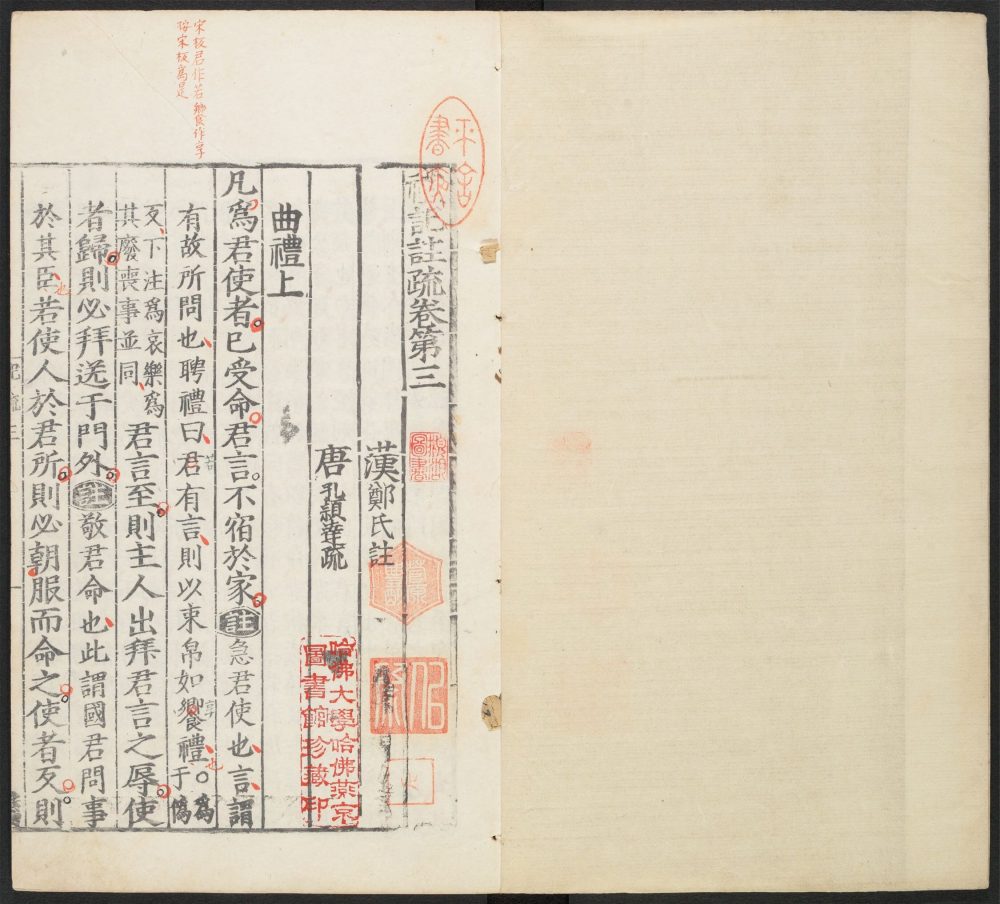 宋板君作若饗作享
按宋板為是
禮記註疏卷第三
漢鄭氏註
唐孔穎達疏
曲禮上
凡爲君使者已受命君言不宿於家註急君使也言謂
有故所問也聘禮曰君有言則以束帛如饗禮也○爲于僞
反下注爲哀樂爲
其廢喪事並同
君言至則主人出拜君言之辱使
者歸則必拜送于門外註敬君命也此謂國君問事
於其臣也若使人於君所則必朝服而命之使者反則
若
享
哈佛大學哈佛燕京
圖書館珍藏印
圖書